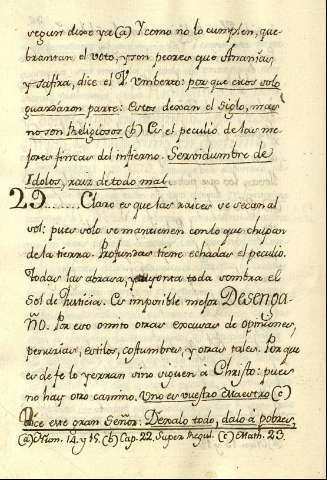 segun dixe ya (a) Y como no lo cumplen, que-
brantan el voto, y son peores que Ananias
y Safira, dice el V. Umberto: por que esos solo
guardaron parte: Estos dexan el Siglo, mas
no son Religiosos (b) Es el peculio de las me-
jores fincas del infierno. Servidumbre de
Idolos, raiz de todo mal.
29....... Claro es que las raices se secan al
sol: pues solo se mantienen con lo que chupan
de la tierra. Profundas tiene echadas el peculio.
Todas las abrasa, y auyenta toda sombra el
Sol de Justicia. Es imposible mejor DESENGA-
ÑO. Por eso omito otras escusas de opiniones,
penurias, estilos, costumbres, y otras tales. Por que
es de fe lo yerran sino siguen á Christo: pues
no hay otro camino. Uno es vuestro Maestro (c)
Dice este gran Señor: Dexalo todo, dalo á pobres,
(a) Num. 14. y 15. (b) Cap. 22. Super Regul. (c) Math. 23.